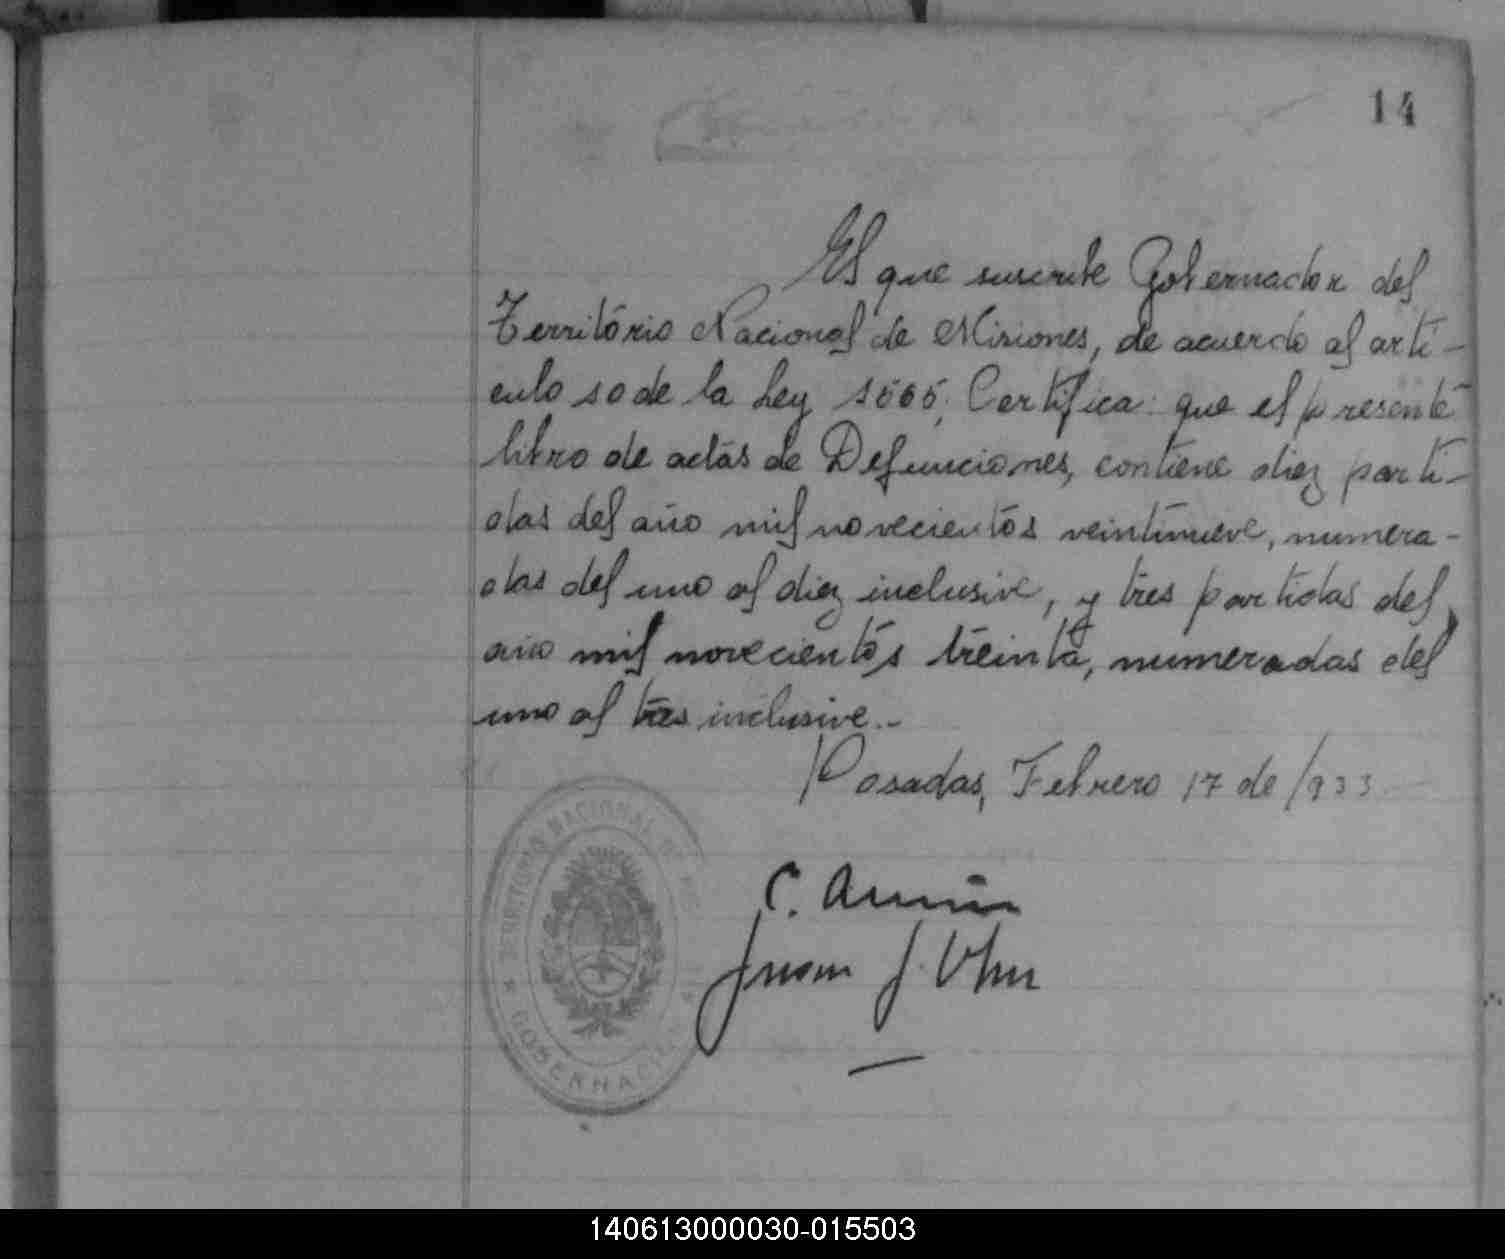 14
El que suscribe Gobernador del
Território Nacional de Misiones, de acuerdo al arti-
culo 10 de la Ley 1565, Certifica: que el presente
libro de actas de Defunciones, contiene diez parti-
das del año mil novecientos veintinueve, numera-
das del uno al diez inclusive, y tres partidas del
año mil novecientos treinta, numeradas del
uno al tres inclusive.-
Posadas, Febrero 17 de 1933
TERRITORIO NACIONAL DE
GOBERNACION
C.
Juan J.
140613000030-015503